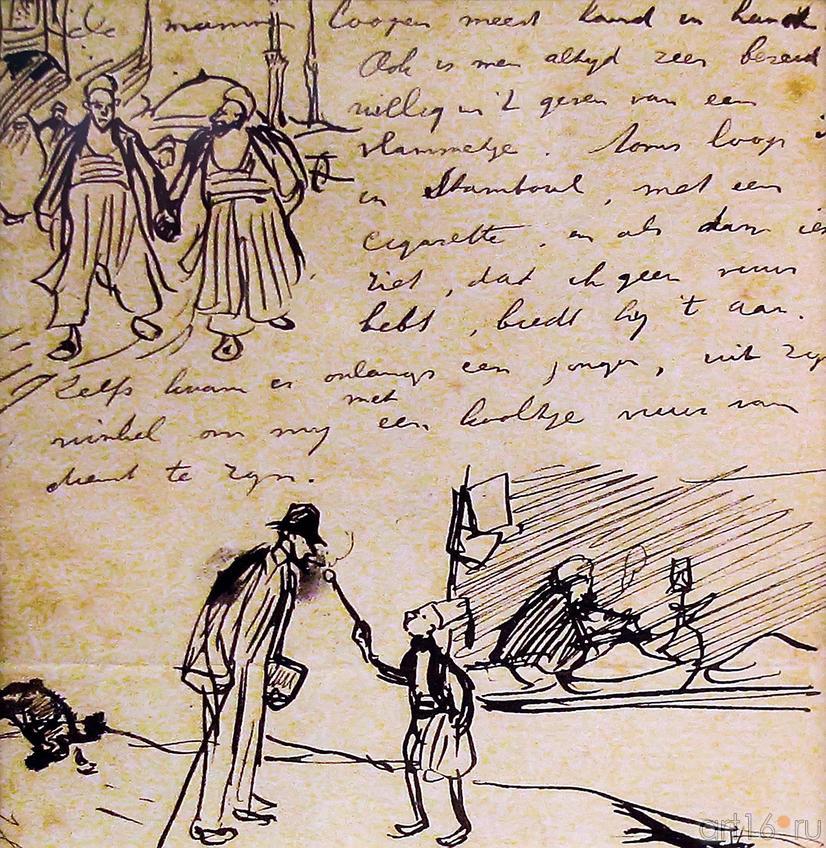 de mannen loopen meest hand in hand.
Ook is men altyd zeer bereid
willig in 't geven van een
vlammetje. Soms loop i
in Stamboul, met een
cigarette, en als dan ie
ziet, dat ik geen vuur
hebt, biedt hy 't aan.
Zelfs kwam er onlangs een jongen, uit zyn
met
winkel om my een kooltje vuur van
dienst te zyn.
art16.ru